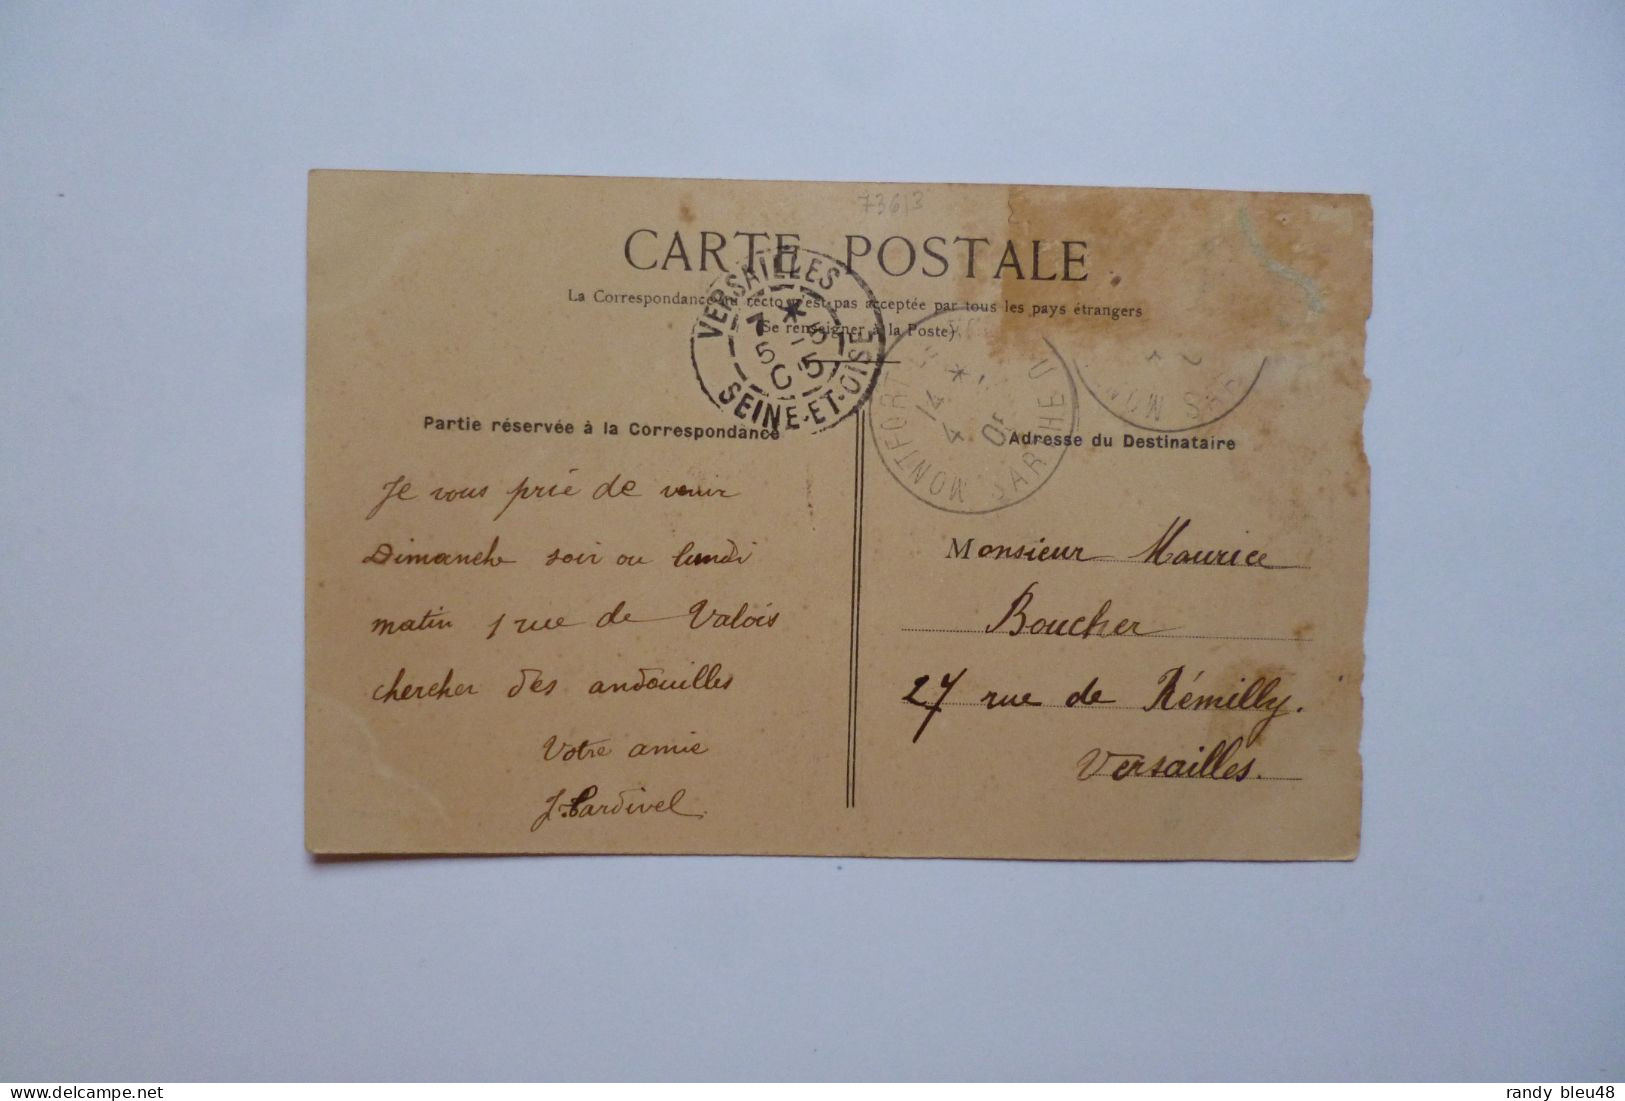 73613
CARTE POSTALE
La Correspondance au recto n'est pas acceptée par tous les pays étrangers
(Se renseigner à la Poste)
VERSAILLES
7 * -5
5 05
SEINE-ET-OISE
MONTFORT
14
4 05
SARTHE
MON
SAR
Partie réservée à la Correspondance
Adresse du Destinataire
Je vous prie de venir
Dimanche soir ou lundi
matin 1 rue de Valois
chercher des andouilles
Votre amie
J. Tardivel
Monsieur Maurice
Boucher
27 rue de Rémilly.
Versailles.
randy bleu48